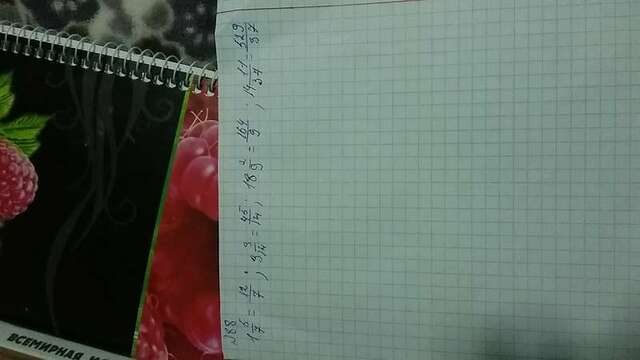 ВСЕМИРНАЯ И
№88
1 5/7 = 12/7 ; 3 3/14 = 45/14 ; 18 2/9 = 164/9 ; 14 11/37 = 529/37